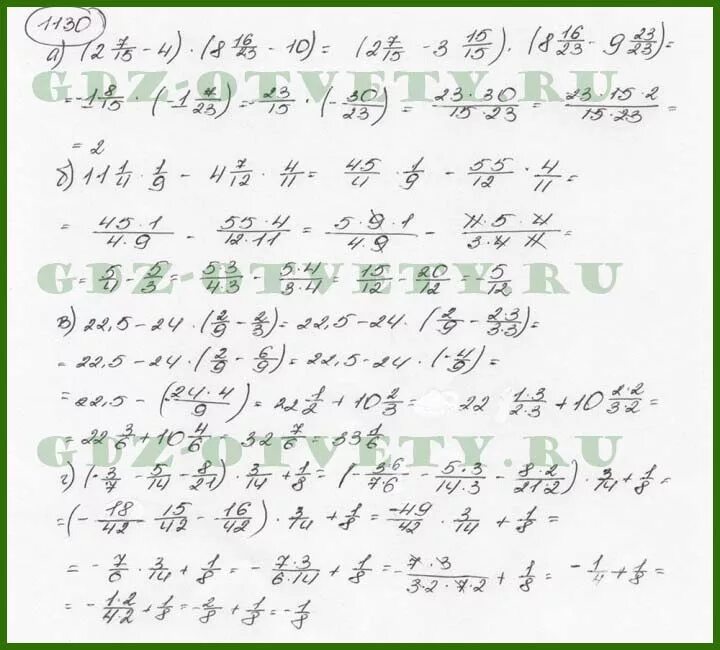 1130
а) (2 7/15 - 4) · (8 16/23 - 10) = (2 7/15 - 3 15/15) · (8 16/23 - 9 23/23) =
GDZ-OTVETY.RU
= -1 8/15 · (-1 7/23) = -23/15 · (-30/23) = 23·30/15·23 = 23·15·2/15·23 =
= 2
б) 11 1/4 · 1/9 - 4 7/12 · 4/11 = 45/4 · 1/9 - 55/12 · 4/11 =
= 45·1/4·9 - 55·4/12·11 = 5·9·1/4·9 - 11·5·4/3·4·11 =
GDZ-OTVETY.RU
= 5/4 - 5/3 = 5·3/4·3 - 5·4/3·4 = 15/12 - 20/12 = -5/12
в) 22,5 - 24 · (2/9 - 2/3) = 22,5 - 24 · (2/9 - 2·3/3·3) =
= 22,5 - 24 · (2/9 - 6/9) = 22,5 - 24 · (-4/9) =
= 22,5 - (-24·4/9) = 22 1/2 + 10 2/3 = 22 1·3/2·3 + 10 2·2/3·2 =
= 22 3/6 + 10 4/6 = 32 7/6 = 33 1/6
GDZ-OTVETY.RU
г) (-3/7 - 5/14 - 8/21) · 3/14 + 1/8 = (-3·6/7·6 - 5·3/14·3 - 8·2/21·2) · 3/14 + 1/8 =
= (-18/42 - 15/42 - 16/42) · 3/14 + 1/8 = -49/42 · 3/14 + 1/8 =
= -7/6 · 3/14 + 1/8 = -7·3/6·14 + 1/8 = -7·3/3·2·7·2 + 1/8 = -1/4 + 1/8 =
= -1·2/4·2 + 1/8 = -2/8 + 1/8 = -1/8